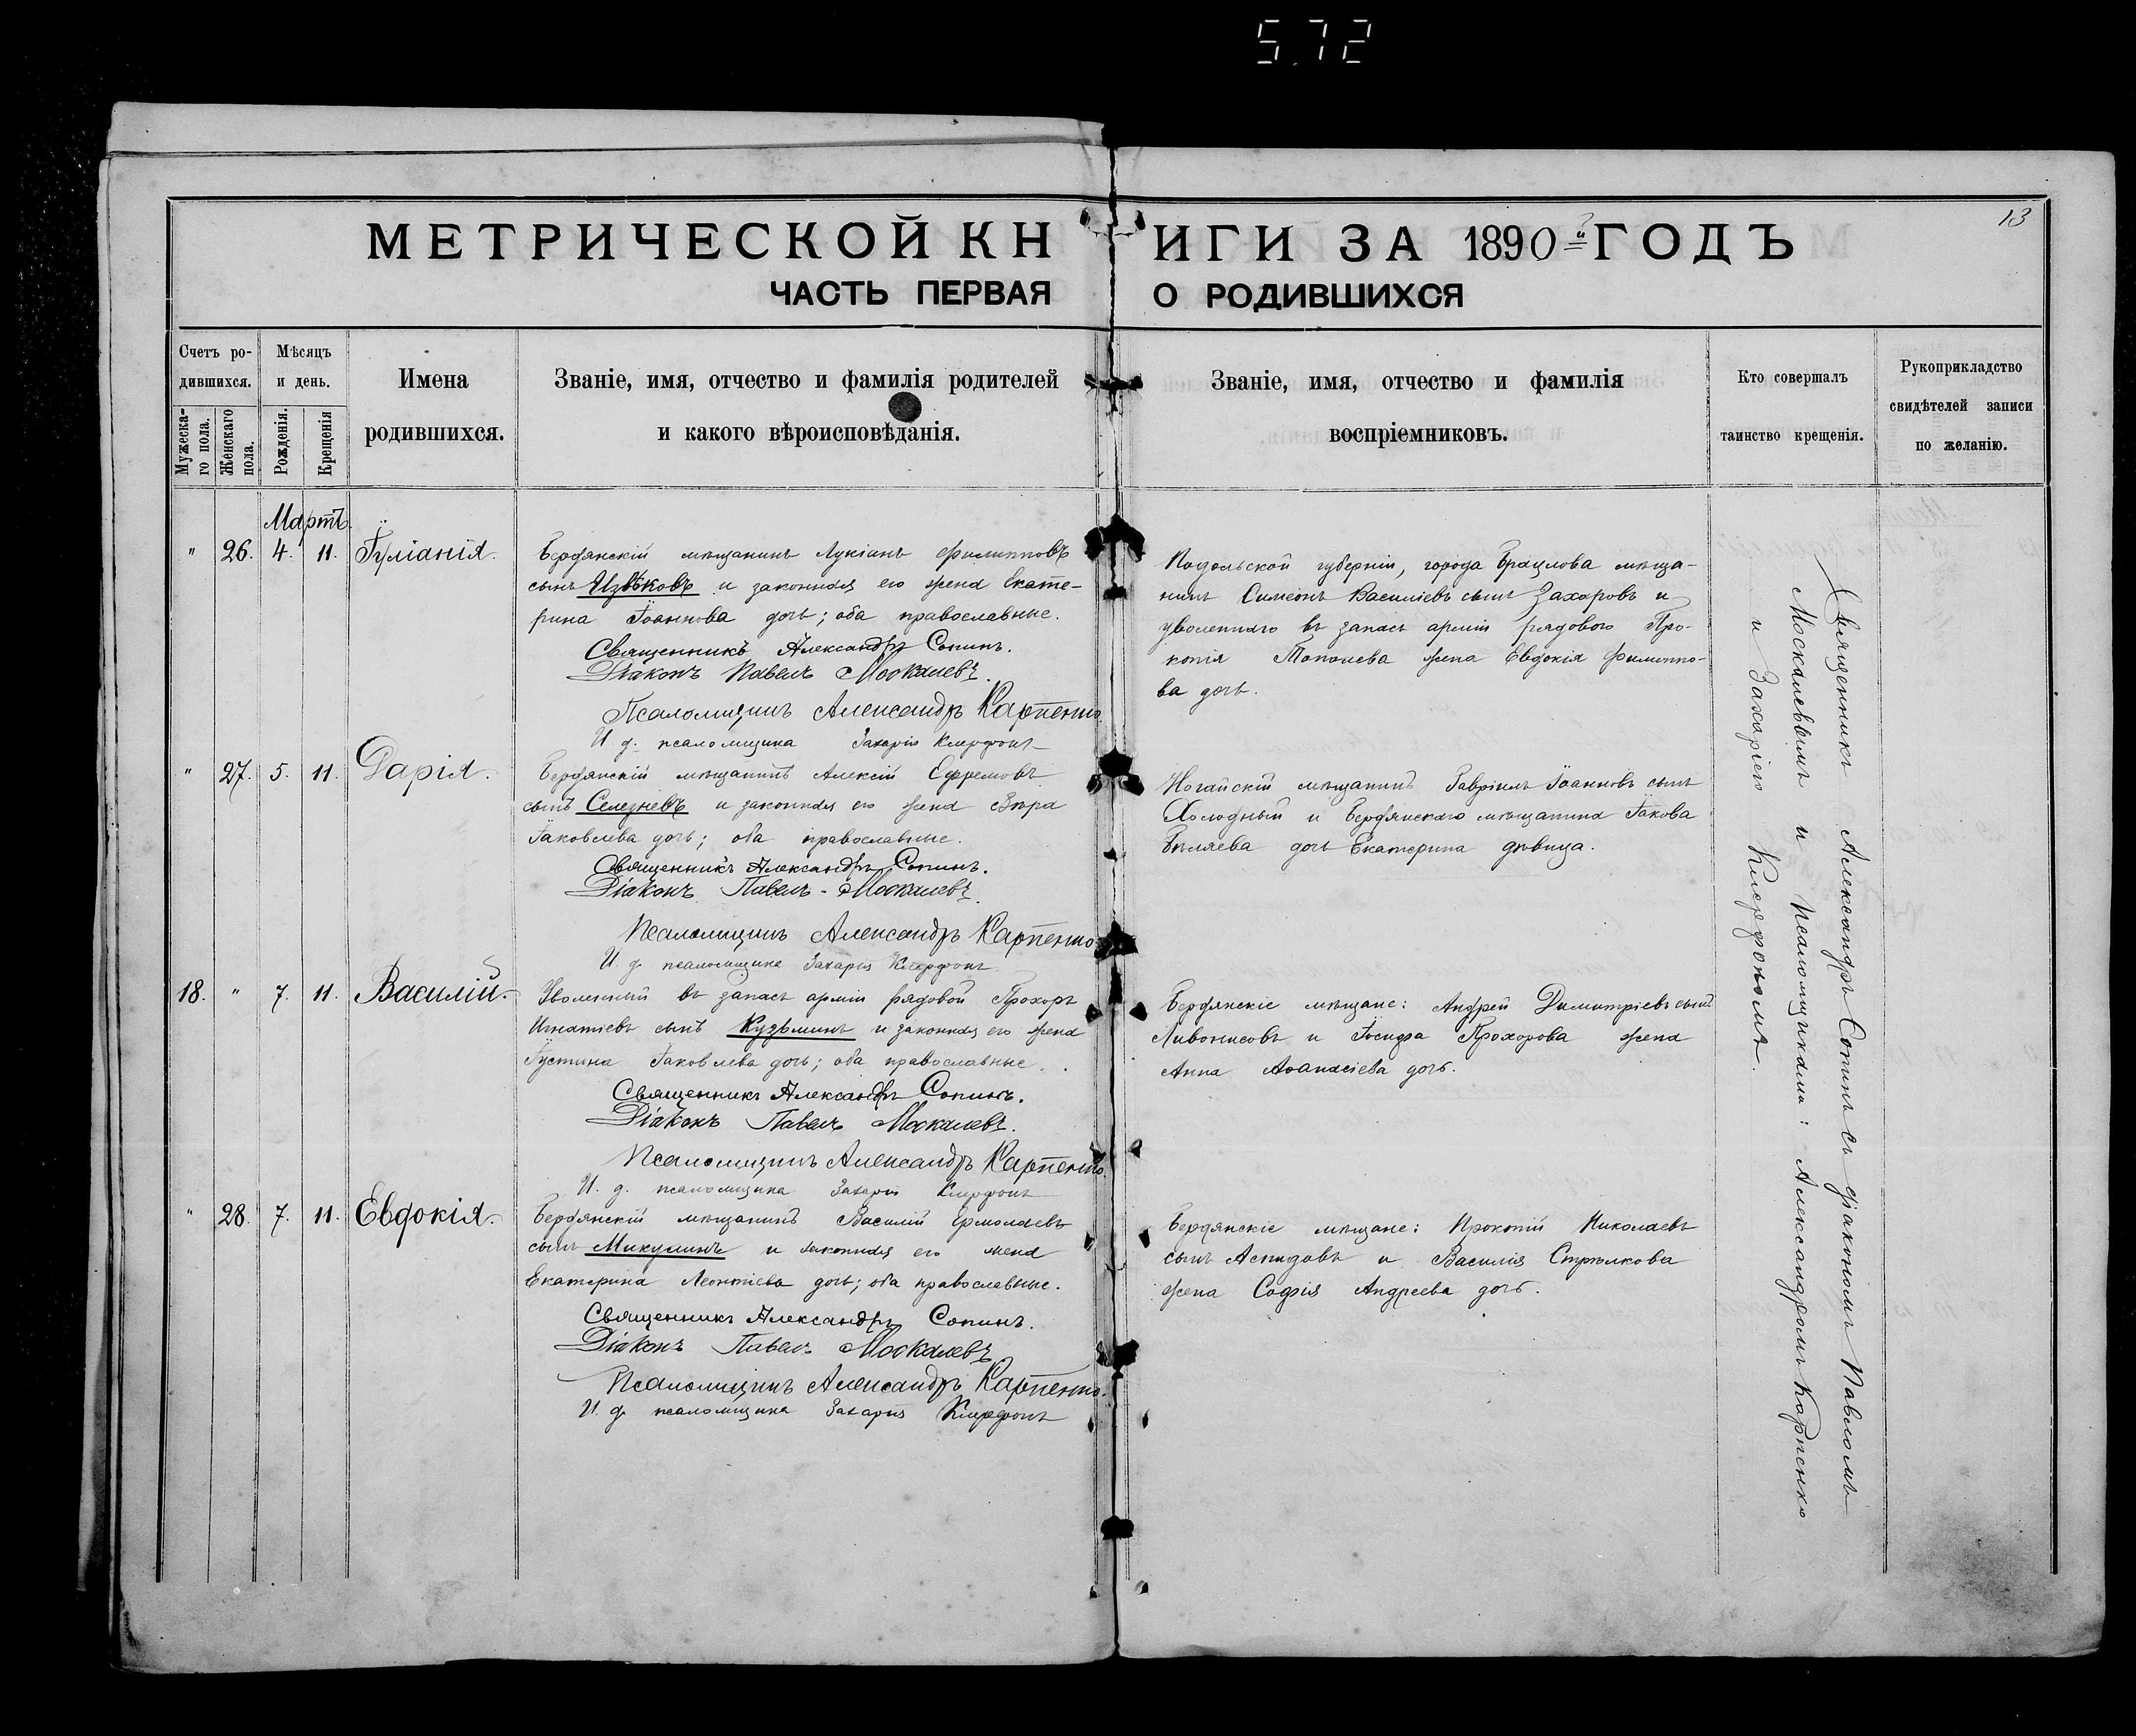 5.72
13
МЕТРИЧЕСКОЙ КНИГИ ЗА 1890-й ГОДЪ
ЧАСТЬ ПЕРВАЯ О РОДИВШИХСЯ
Счетъ ро-
дившихся.
Мужеска-
го пола.
Женскаго
пола.
Мѣсяцъ
и день.
Рожденія.
Крещенія
Имена
родившихся.
Званіе, имя, отчество и фамилія родителей
и какого вѣроисповѣданія.
Званіе, имя, отчество и фамилія
воспріемниковъ.
Кто совершалъ
таинство крещенія.
Рукоприкладство
свидѣтелей записи
по желанію.
Мартъ
" 26. 4. 11. Іуліанія.
Бердянскій мѣщанинъ Лукіанъ Филипповъ
сынъ Извѣковъ и законная его жена Екате-
рина Іоаннова дочь; оба православные.
Священникъ Александръ Сопинъ.
Діаконъ Павелъ Москалевъ.
Псаломщикъ Александръ Карпенко
И. д. псаломщика Захарія Клерфонъ
Подольской губерніи, города Брацлова мѣща-
нинъ Симеонъ Василіевъ сынъ Захаровъ и
уволеннаго въ запасъ арміи рядового Про-
копія Тополева жена Евдокія Филиппо-
ва дочь.
" 27. 5. 11. Дарія.
Бердянскій мѣщанинъ Алексій Ефремовъ
сынъ Селезневъ и законная его жена Вѣра
Іаковлева дочь; оба православные.
Священникъ Александръ Сопинъ.
Діаконъ Павелъ Москалевъ.
Псаломщикъ Александръ Карпенко
И. д. псаломщика Захарія Клерфонъ
Ногайскій мѣщанинъ Гавріилъ Іоанновъ сынъ
Холодный и Бердянскаго мѣщанина Іакова
Бѣляева дочь Екатерина дѣвица.
18. " 7. 11. Василій.
Уволенный въ запасъ арміи рядовой Прохоръ
Игнатіевъ сынъ Кузьминъ и законная его жена
Іустина Іаковлева дочь; оба православные.
Священникъ Александръ Сопинъ.
Діаконъ Павелъ Москалевъ.
Псаломщикъ Александръ Карпенко.
И. д. псаломщика Захарія Клерфонъ
Бердянскіе мѣщане: Андрей Димитріевъ сынъ
Ливонисовъ и Іосифа Прохорова жена
Анна Аѳанасіева дочь.
" 28. 7. 11. Евдокія.
Бердянскій мѣщанинъ Василій Ермолаевъ
сынъ Микулинъ и законная его жена
Екатерина Леонтіева дочь; оба православные.
Священникъ Александръ Сопинъ.
Діаконъ Павелъ Москалевъ
Псаломщикъ Александръ Карпенко.
И. д. псаломщика Захарія Клерфонъ
Бердянскіе мѣщане: Прокопій Николаевъ
сынъ Аспидовъ и Василія Стрѣлкова
жена Софія Андреева дочь.
Священникъ Александръ Сопинъ съ діакономъ Павломъ
Москалевымъ и псаломщиками: Александромъ Карпенко
и Захаріею Клерфономъ.